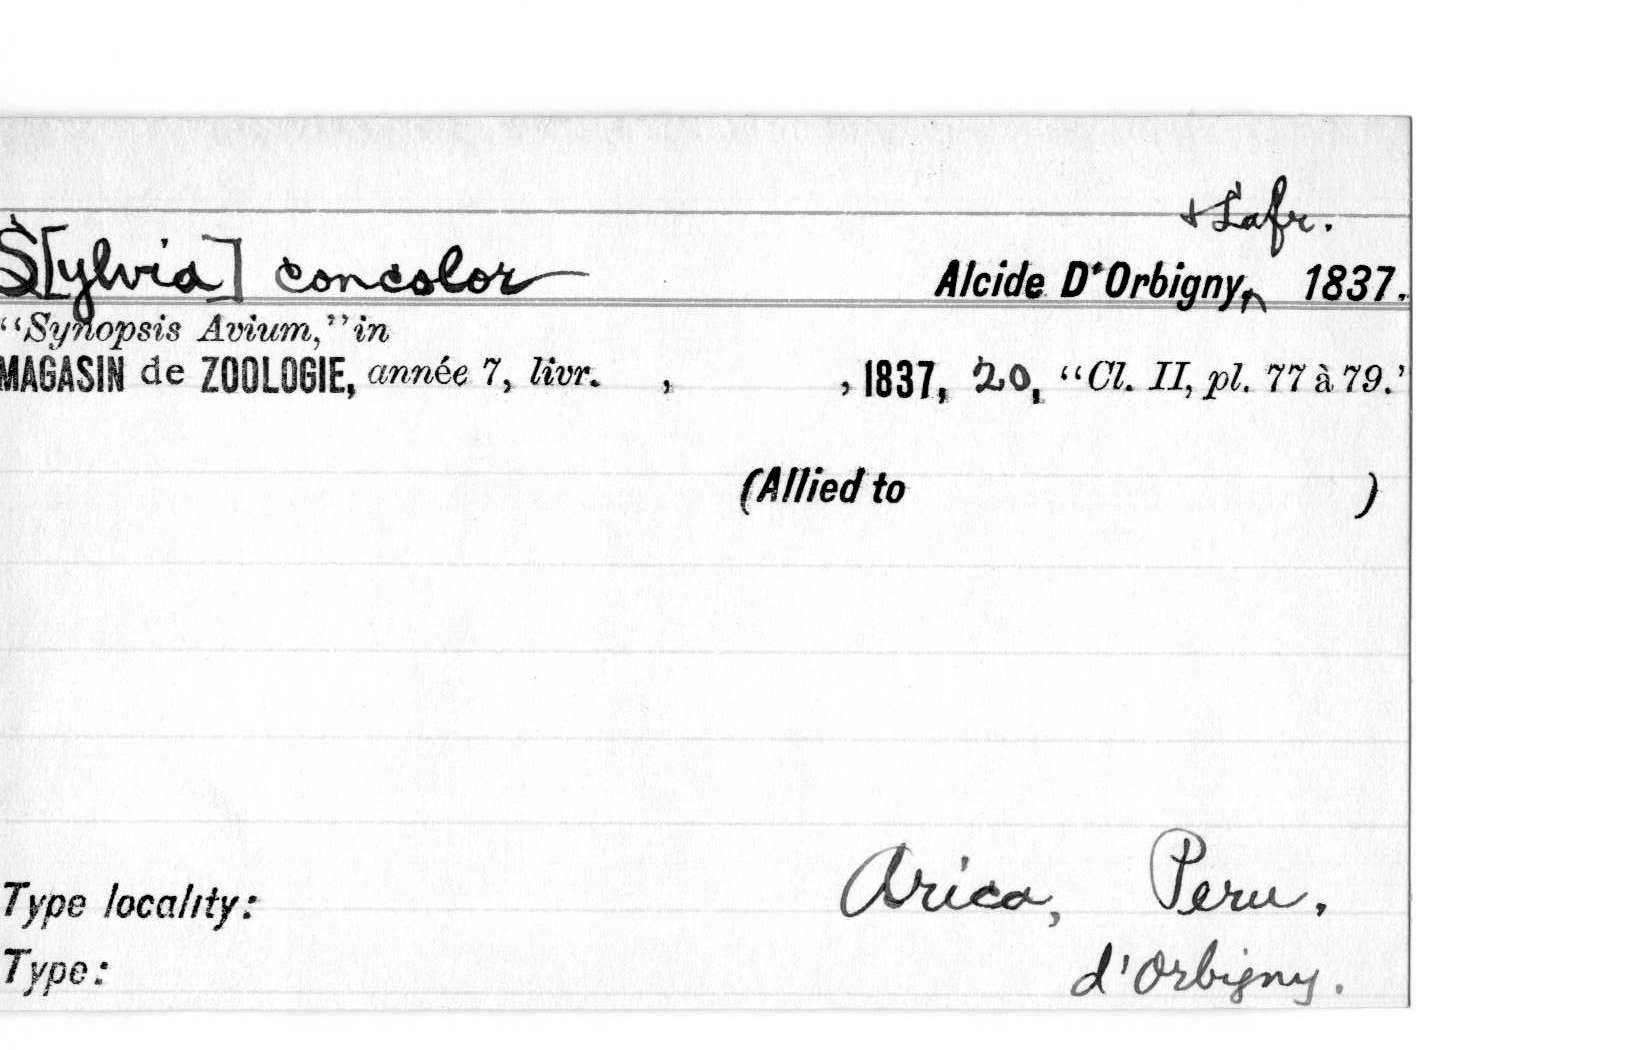 + Lafr.
S[ylvia] concolor Alcide D'Orbigny, 1837.
“Synopsis Avium,” in
MAGASIN de ZOOLOGIE, année 7, livr. , , 1837, 20, “Cl. II, pl. 77 à 79.’
(Allied to )
Type locality: Arica, Peru.
Type: d'Orbigny.